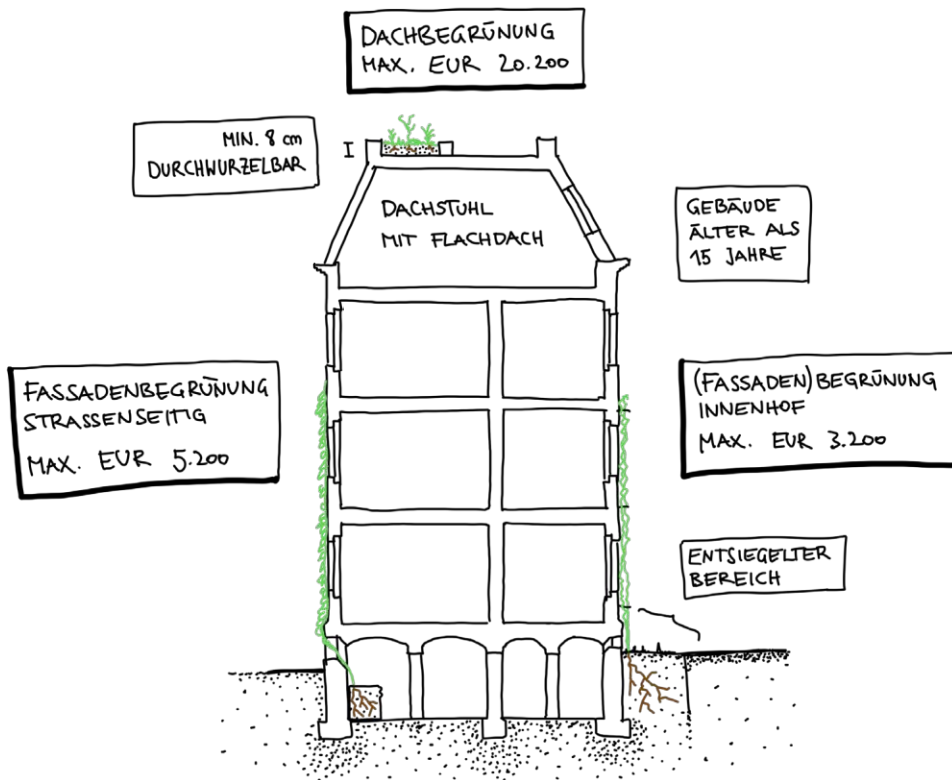 DACHBEGRÜNUNG
MAX. EUR 20.200
MIN. 8 cm
DURCHWURZELBAR
I
DACHSTUHL
MIT FLACHDACH
GEBÄUDE
ÄLTER ALS
15 JAHRE
FASSADENBEGRÜNUNG
STRASSENSEITIG
MAX. EUR 5.200
(FASSADEN)BEGRÜNUNG
INNENHOF
MAX. EUR 3.200
ENTSIEGELTER
BEREICH